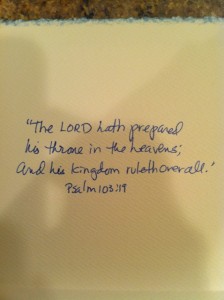 "The LORD hath prepared
his throne in the heavens;
And his kingdom ruleth over all."
Psalm 103:19